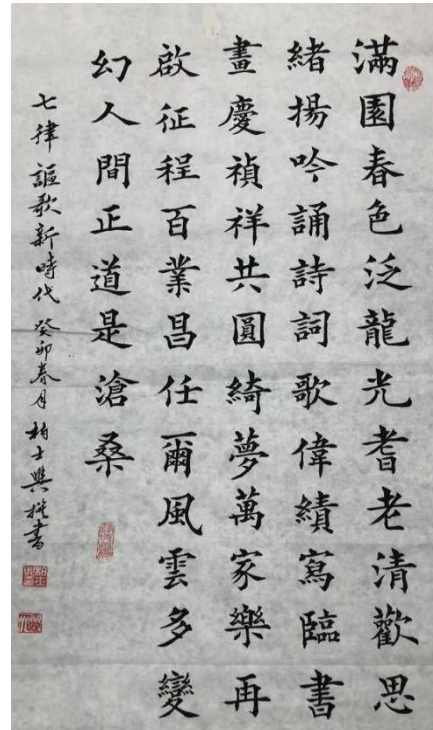 滿園春色泛龍光耆老清歡思
緒揚吟誦詩詞歌偉績寫臨書
畫慶禎祥共圓綺夢萬家樂再
啟征程百業昌任爾風雲多變
幻人間正道是滄桑
七律謳歌新時代 癸卯春月 柏士興撰書